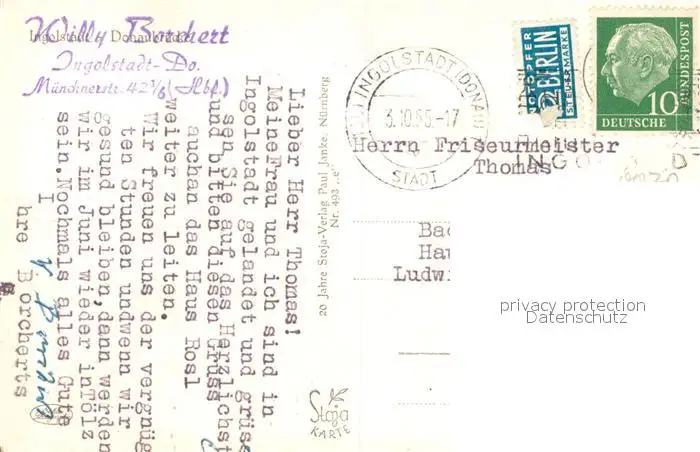 Willy Borchert
Ingolstadt Donaubrücke
Ingolstadt-Do.
Münchnerstr. 42 1/6 (Hbf.)
Lieber Herr Thomas!
Meine Frau und ich sind in
Ingolstadt gelandet und grüss
sen Sie auf das Herzlichst
und bitten diesen Gruss
auchan das Haus Rosl
weiter zu leiten.
Wir freuen uns der vergnüg
ten Stunden undwenn wir
gesund bleiben,dann werden
wir im Juni wieder inTölz
sein.Nochmals alles Gute
I
hre Borcherts
20 Jahre Stoja-Verlag Paul Janke, Nürnberg
Nr. 493 „e"
Stoja
KARTE
INGOLSTADT (DONAU)
3.10.55.-17
STADT
NOTOPFER
2 BERLIN
STEUERMARKE
DEUTSCHE
BUNDESPOST
10
Herrn Friseurmeister
Thomas
INGO
Bad
Hau
Ludwi
privacy protection
Datenschutz